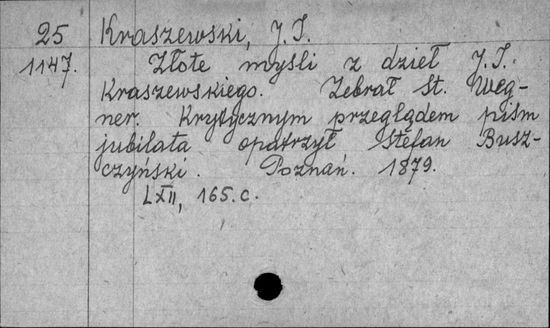 25 Kraszewski, J. I.
1147. Złote myśli z dzieł J. I.
Kraszewskiego. Zebrał St. Weg-
ner. Krytycznym przeglądem pism
jubilata opatrzył Stefan Busz-
czyński. Poznań. 1879.
LXII, 165. c.